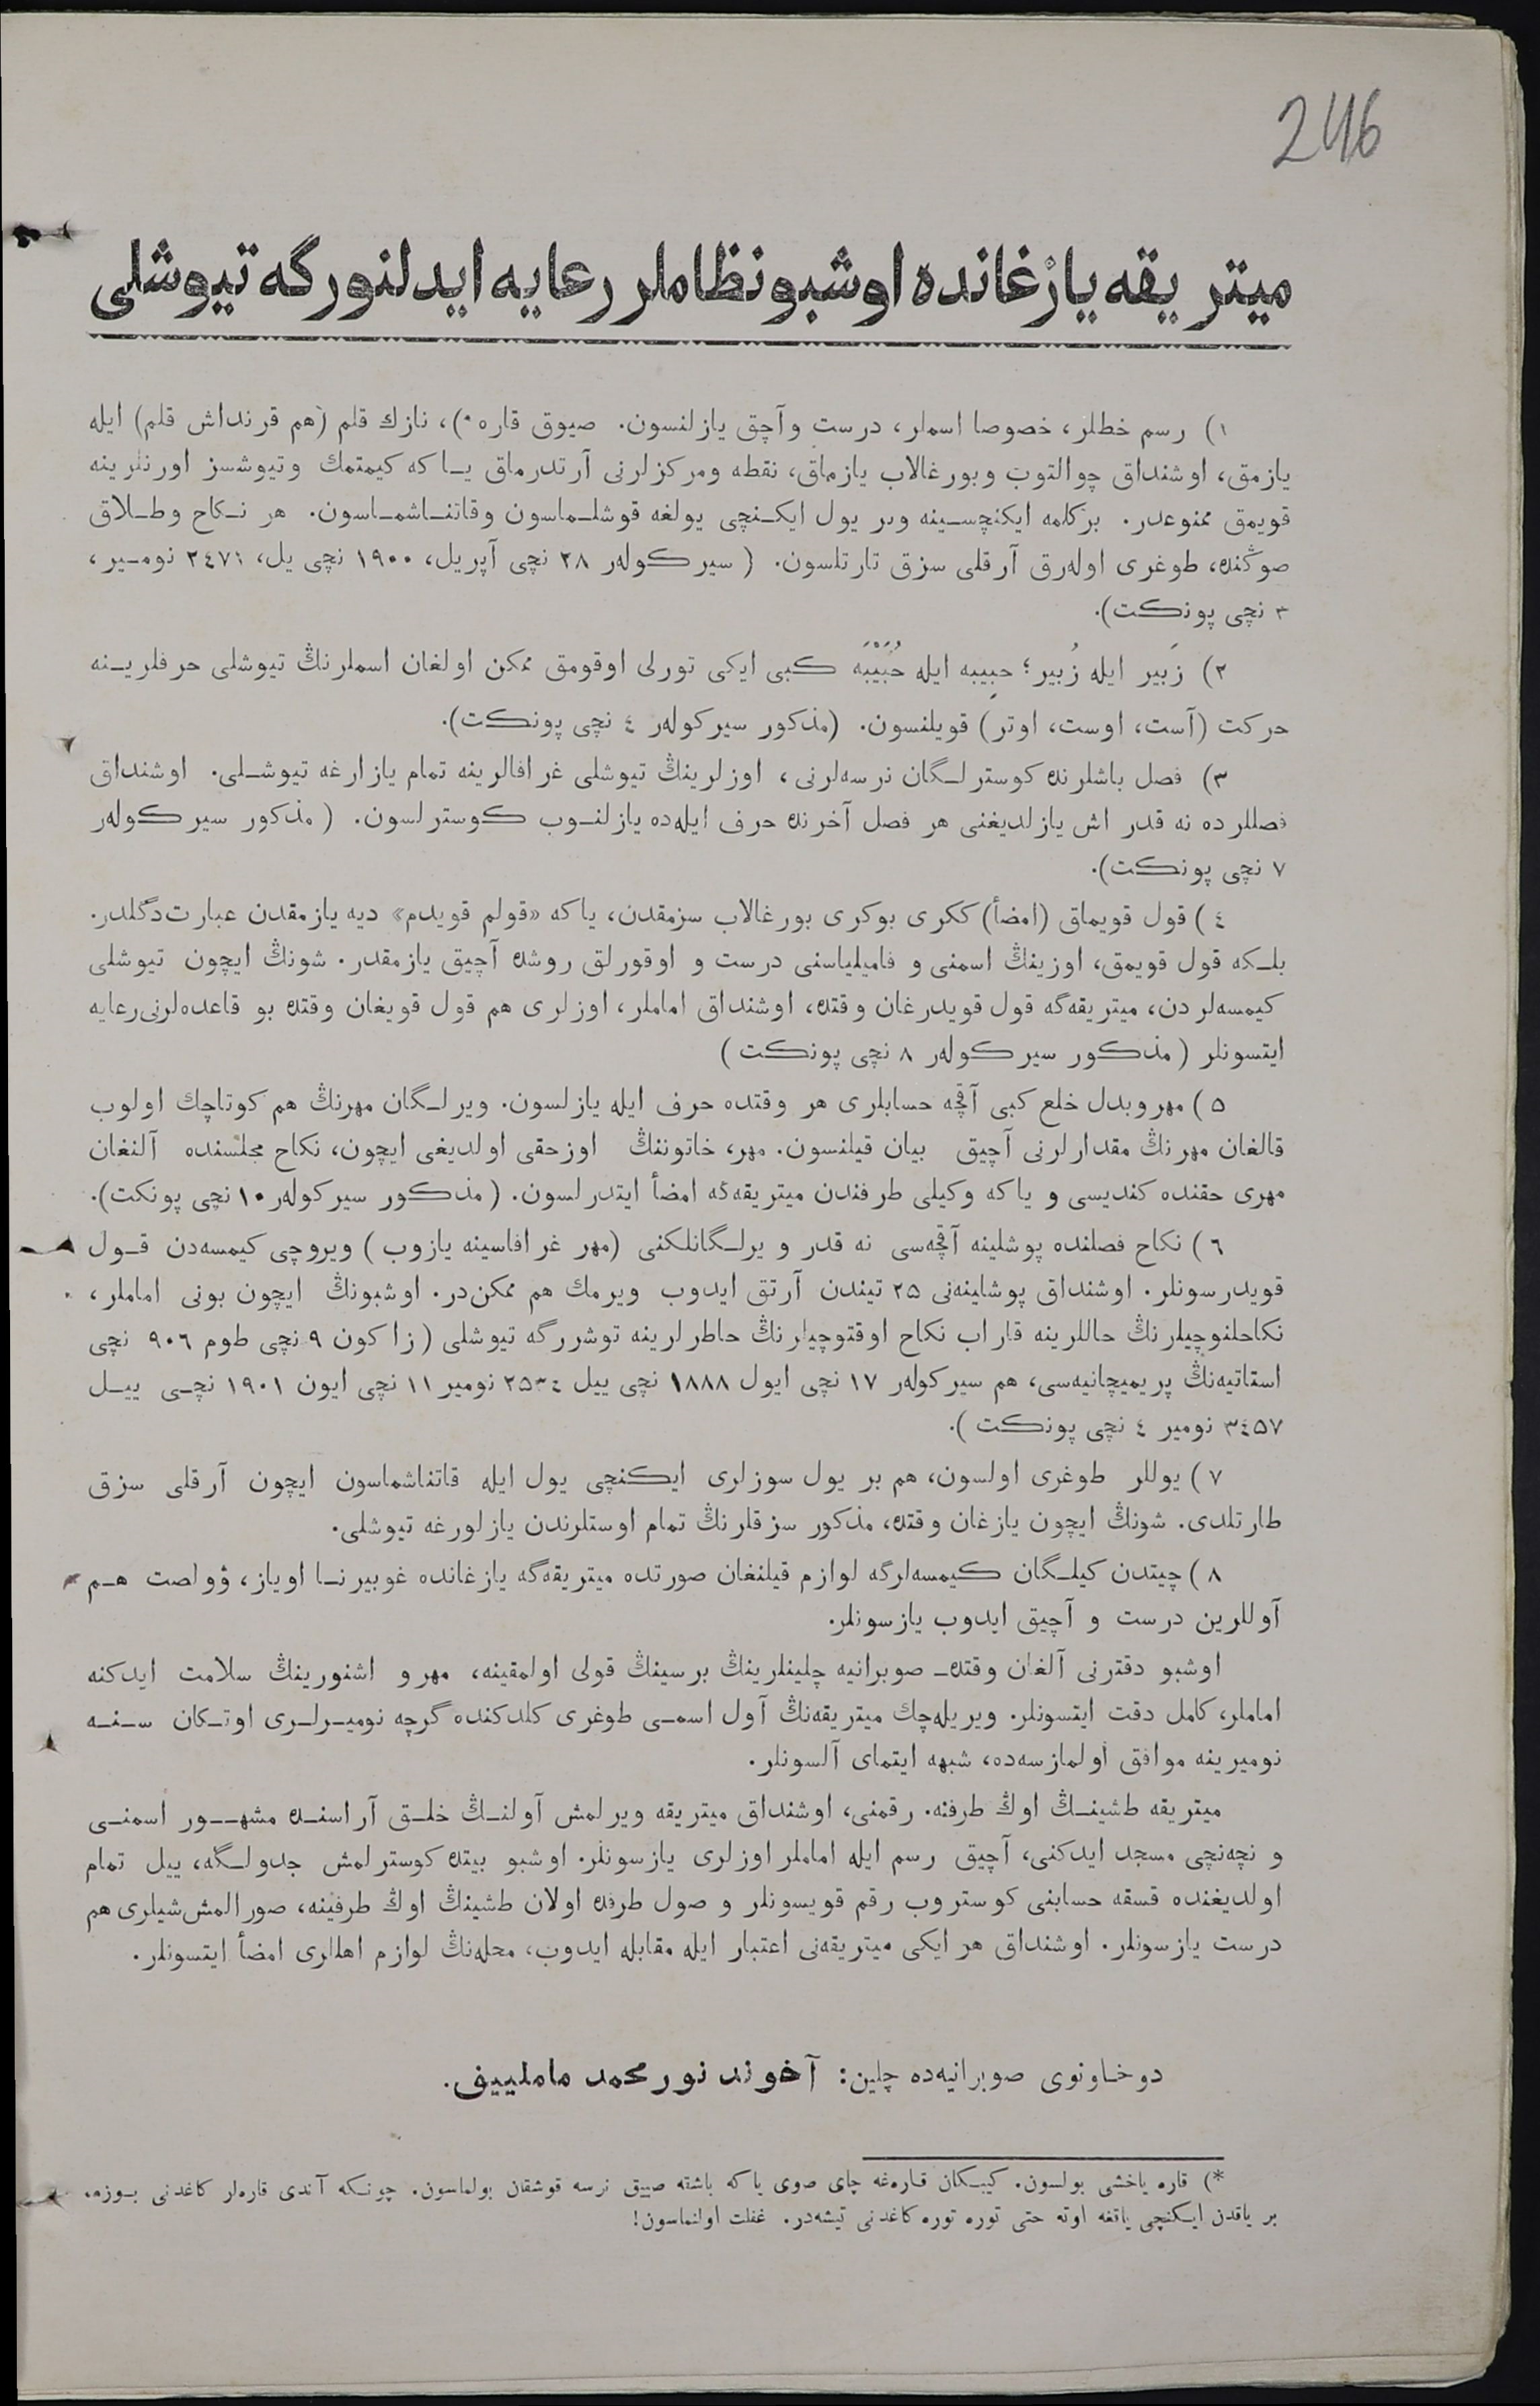 246
ميتريقه يازغانده اوشبو نظاملر رعايه ايدلنورگه تيوشلى
١) رسم خطلر، خصوصا اسملر، درست وآچق يازلنسون. صيوق قاره *)، نازك قلم (هم قرنداش قلم) ايله
يازمق، اوشنداق چوالتوب وبورغالاب يازماق، نقطه ومركزلرنى آرتدرماق يــاكه كيمتمك وتيوشسز اورنلرينه
قويمق ممنوعدر. بركلمه ايكنچسـينه وبر يول ايكـنچى يولغه قوشلـماسون وقاتنـاشمـاسون. هر نـكاح وطـلاق
صوڭنده، طوغرى اولەرق آرقلى سزق تارتلسون. (سيركولەر ٢٨ نچى آپريل، ١٩٠٠ نچى يل، ٢٤٧١ نوميـر،
٣ نچى پونكت).
٢) زَبير ايله زُبير؛ حبِيبه ايله حُبَيْبَه كبى ايكى تورلى اوقومق ممكن اولغان اسملرنڭ تيوشلى حرفلريـنه
حركت (آست، اوست، اوتر) قويلنسون. (مذكور سيركولەر ٤ نچى پونكت).
٣) فصل باشلرنده كوسترلـگان نرسەلرنى، اوزلرينڭ تيوشلى غرافالرينه تمام يازارغه تيوشـلى. اوشنداق
فصللرده نه قدر اش يازلديغنى هر فصل آخرنده حرف ايلەده يازلنـوب كوسترلسون. (مذكور سيركولەر
٧ نچى پونكت).
٤) قول قويماق (امضأ) ككرى بوكرى بورغالاب سزمقدن، ياكه «قولم قويدم» ديه يازمقدن عبارت دگلدر.
بلـكه قول قويمق، اوزينڭ اسمنى و فاميلياسنى درست و اوقورلق روشده آچيق يازمقدر. شونڭ ايچون تيوشلى
كيمسەلردن، ميتريقەگه قول قويدرغان وقتده، اوشنداق اماملر، اوزلرى هم قول قويغان وقتده بو قاعدەلرنى رعايه
ايتسونلر (مذكور سيركولەر ٨ نچى پونكت)
٥) مهر وبدل خلع كبى آقچه حسابلرى هر وقتده حرف ايله يازلسون. ويرلـگان مهرنڭ هم كوتاچك اولوب
قالغان مهرنڭ مقدارلرنى آچيق بيان قيلنسون. مهر، خاتوننڭ اوزحقى اولديغى ايچون، نكاح مجلسنده آلنغان
مهرى حقنده كنديسى و ياكه وكيلى طرفندن ميتريقەگه امضأ ايتدرلسون. (مذكور سيركولەر ١٠ نچى پونكت).
٦) نكاح فصلنده پوشلينه آقچەسى نه قدر ويرلـگانلكنى (مهر غرافاسينه يازوب) ويروچى كيمسەدن قـول
قويدرسونلر. اوشنداق پوشلينەنى ٢٥ تيندن آرتق ايدوب ويرمك هم ممكن‌در. اوشبونڭ ايچون بونى اماملر،
نكاحلنوچيلرنڭ حاللرينه قاراب نكاح اوقتوچيلرنڭ خاطرلرينه توشررگه تيوشلى (زاكون ٩ نچى طوم ٩٠٦ نچى
استاتيەنڭ پريميچانيەسى، هم سيركولەر ١٧ نچى ايول ١٨٨٨ نچى ييل ٢٥٣٤ نومير ١١ نچى ايون ١٩٠١ نچـى ييـل
٣٤٥٧ نومير ٤ نچى پونكت).
٧) يوللر طوغرى اولسون، هم بر يول سوزلرى ايكنچى يول ايله قاتناشماسون ايچون آرقلى سزق
طارتلدى. شونڭ ايچون يازغان وقتده، مذكور سزقلرنڭ تمام اوستلرندن يازلورغه تيوشلى.
٨) چيتدن كيلـگان كيمسەلرگه لوازم قيلنغان صورتده ميتريقەگه يازغانده غوبيرنــا اوياز، ۋولصت هـم
آوللرين درست و آچيق ايدوب يازسونلر.
اوشبو دفترنى آلغان وقتدهـ صوبرانيه چلينلرينڭ برسينڭ قولى اولمقينه، مهر و اشنورينڭ سلامت ايدكنه
اماملر، كامل دقت ايتسونلر. ويريلەچك ميتريقەنڭ آول اسمـى طوغرى كلدكنده گرچه نوميـرلـرى اوتـكان سـنـه
نوميرينه موافق اولمازسەده، شبهه ايتماى آلسونلر.
ميتريقه طشينـڭ اوڭ طرفنه. رقمنى، اوشنداق ميتريقه ويرلمش آولنـڭ خلـق آراسنـده مشهــور اسمنـى
و نچەنچى مسجد ايدكنى، آچيق رسم ايله اماملر اوزلرى يازسونلر. اوشبو بيتده كوسترلمش جدولـگه، ييل تمام
اولديغنده قسقه حسابنى كوستروب رقم قويسونلر و صول طرفده اولان طشينڭ اوڭ طرفينه، صورالمش شيلرى هم
درست يازسونلر. اوشنداق هر ايكى ميتريقەنى اعتبار ايله مقابله ايدوب، محلەنڭ لوازم اهاللرى امضأ ايتسونلر.
دوخاونوى صوبرانيەده چلين: آخوند نورمحمد ماملييف.
*) قاره ياخشى بولسون. كيبـكان قارەغه چاى صوى ياكه باشقه صييق نرسه قوشقان بولماسون. چونـكه آندى قارەلر كاغدنى بـوزه،
بر ياقدن ايـكنچى ياقغه اوته حتى توره توره كاغدنى تيشەدر. غفلت اولنماسون!